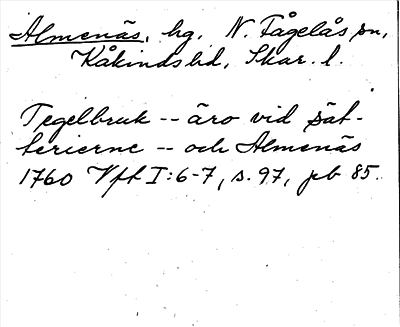 Almenäs, hg, N. Fågelås sn,
Kåkinds hd, Skar. l.
Tegelbruk -- äro vid sät-
terierne -- och Almenäs
1760 Vfl I:6-7, s. 97, pb 85.